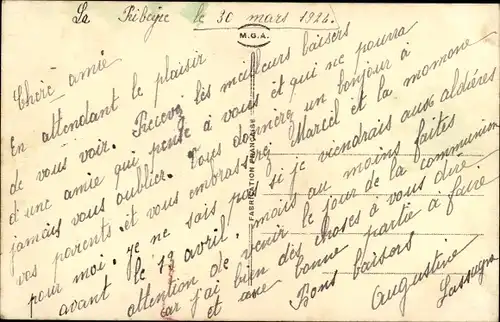 La Ribeyre le 30 mars 1926.
M.G.A.
FABRICATION FRANÇAISE
Chère amie
En attendant le plaisir
de vous voir. Recevez les meilleurs baisers
d'une amie qui pense à vous et qui ne pourra
jamais vous oublier. Vous donnerez un bonjour à
vos parents et vous embrasserez Marcel et la momone
pour moi. je ne sais pas si je viendrais aux aldières
avant le 19 avril, mais au moins faites
attention de venir le jour de la communion
car j'ai bien des choses à vous dire
et une bonne partie à faire
Bons baisers
Augustine